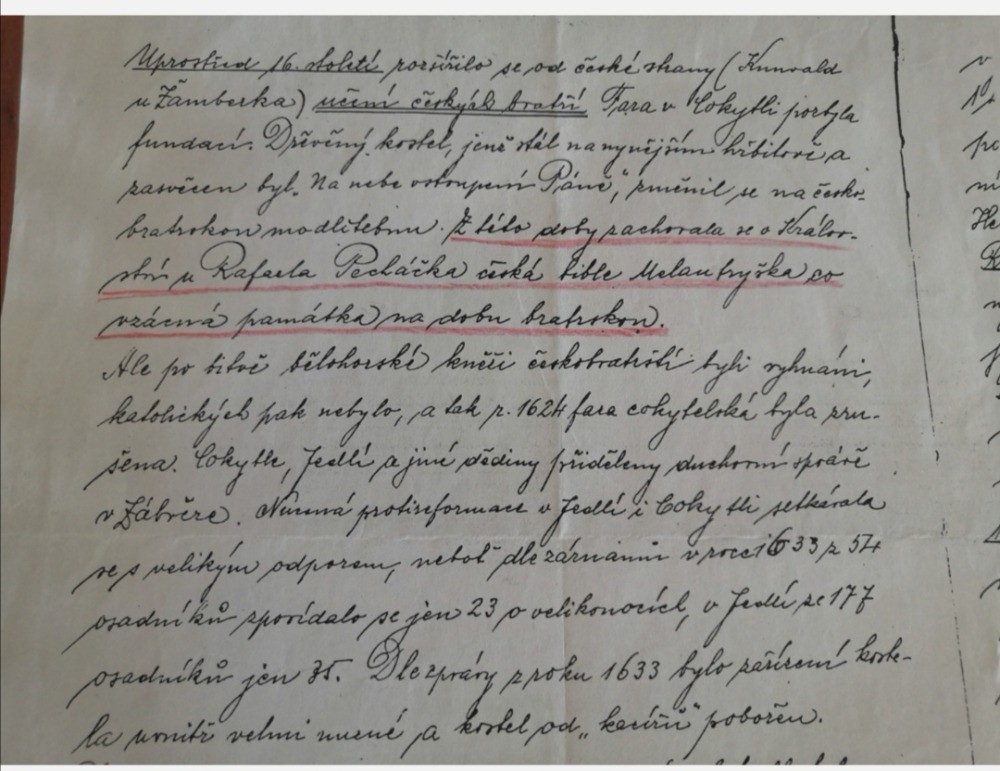 Uprostřed 16. století rozšířilo se od české strany (Kunvald
u Žamberka) učení českých bratří. Fara v Cokytli pozbyla
fundací. Dřevěný kostel, jenž stál na nynějším hřbitově a
zasvěcen byl „Na nebe vstoupení Páně", změnil se na česko-
bratrskou modlitebnu. Z této doby zachovala se v Králov-
ství u Rafaela Pecháčka česká bible Melantryška co
vzácná památka na dobu bratrskou.
Ale po bitvě bělohorské kněží českobratrští byli vyhnáni,
katolických pak nebylo, a tak r. 1624 fara cokytelská byla zru-
šena. Cokytle, Jedlí a jiné dědiny přiděleny duchovní správě
v Zábřeze. Nucená protireformace v Jedlí i Cokytli setkávala
se s velikým odporem, neboť dle záznamů v roce 1633 z 54
osadníků zpovídalo se jen 23 o velikonocích, v Jedlí ze 177
osadníků jen 35. Dle zprávy z roku 1633 bylo zařízení koste-
la uvnitř velmi nuzné a kostel od „kacířů" pobořen.